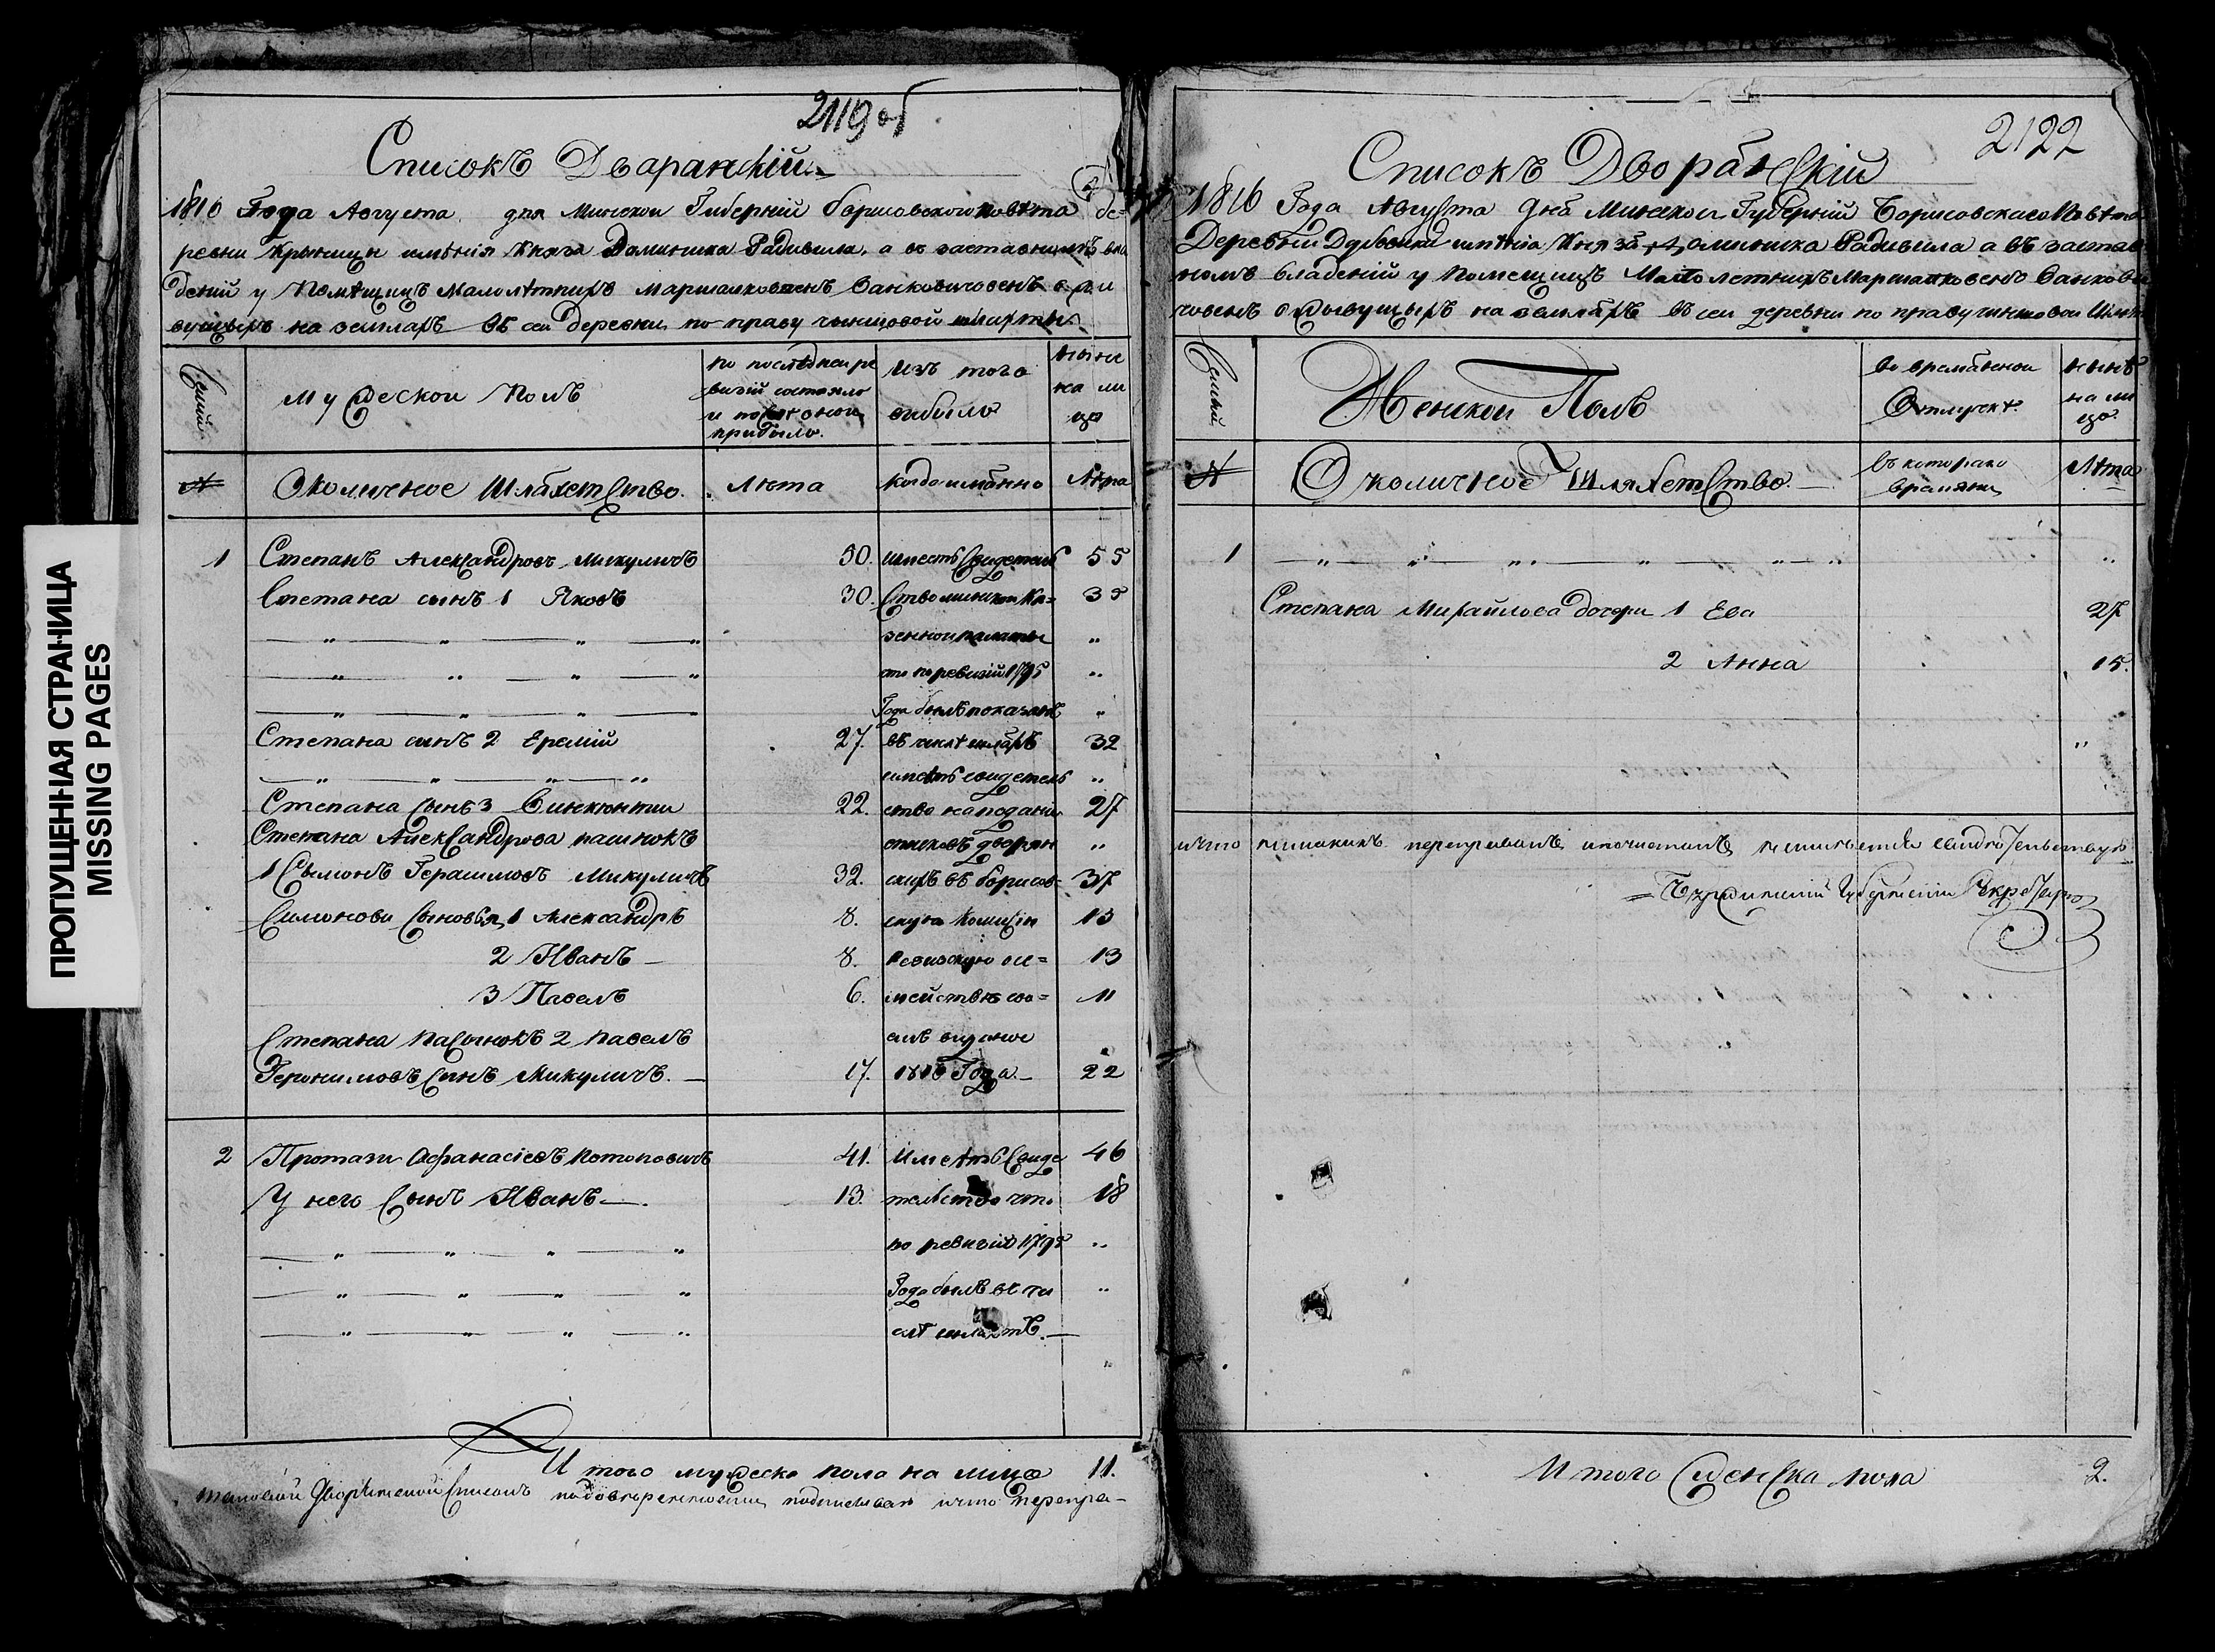 ПРОПУЩЕННАЯ СТРАНИЦА
MISSING PAGES
2119 об
Списокъ Дваранскій
1816 Года Августа дня Минской Губерній Борисовского Повѣта де=
ревни Крыницы имѣнія Князя Доминика Радивила, а въ заставнымъ вла
деній у Помѣщицъ Малолѣтнихъ Маршалковенъ Ванковичовенъ
вущыхъ на земляхъ въ сей деревни по праву чыншовой шляхты
Семьи
Мужеской Полъ
по последней ре
визій состояло
и после оной
прибыло.
изъ того
выбыло
ныне
на ли
цо
№
Околичное Шляхетство.
Лѣта
когда имянно
Лѣта
1 Степанъ Александровъ Микуличъ 50. имеетъ Свидетель 55
Степана сынъ 1 Яковъ 30. Ство минской Ка= 35
" " " " зенной палаты "
" " " " что по ревизій 1795 "
" " " " Года былъ показанъ "
Степана сынъ 2 Еремій 27. въ числе шляхъ 32
" " " " имѣетъ свидетель "
Степана Сынъ 3 Винкентии 22. ство на поданіи 27
Степана Александрова пасинокъ списковъ дворян "
1 Сымонъ Герасимовъ Микуличъ 32. скихъ въ борисов= 37
Симонови Сыновья 1 Александръ 8. скую Комисію 13
2 Иванъ 8. Ревизскую 13
3 Павелъ 6. 11
Степана Пасынокъ 2 Павелъ выданое
Геронимовъ Сынъ Микуличъ. 17. 1816 Года. 22
2 Протази Афанасіевъ Потоповичъ 41. Имеетъ Свиде 46
У него Сынъ Иванъ 13. тельство что 18
" " " " по ревизій 1795 "
" " " " Года былъ въ чи "
" " " " слѣ шляхтѣ. "
И того мужеска пола на лицо 11.
таковой Дворянской Списокъ подписываю и что перепра-
2122
Списокъ Дворанскій
1816 Года Августа Дня Минской Губерній Борисовскаго Повѣта
Деревни Дубовики имѣнія Князя Доминика Радивила а въ застав
номъ владеній у Помещицъ Малолетнихъ Маршалковенъ Ванкови
човенъ а живущыхъ на земляхъ въ сей деревни по праву чиншовой Шлях
Семьи
Женской Полъ
во времянной
Отлучкѣ
нынѣ
на ли
цо
№
Околичное Шляхетство.
съ которого
времяни
Лѣта
1 " " " " " " "
Степана Михайлова дочери 1 Ева 27
2 Анна 15.
"
и что никакихъ переправакъ и почистакъ неимѣется свидѣтельствую
Губернскій Секретарь
И того Женска пола 2.